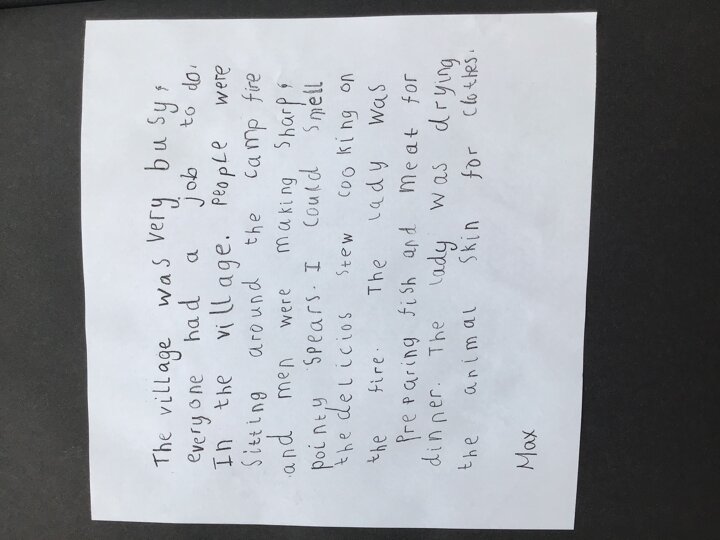 The village was very busy,
everyone had a job to do.
In the village. People were
Sitting around the camp fire
and men were making sharp,
pointy spears. I could smell
the delicios stew cooking on
the fire. The lady was
Preparing fish and meat for
dinner. The lady was drying
the animal skin for clothes.
Max